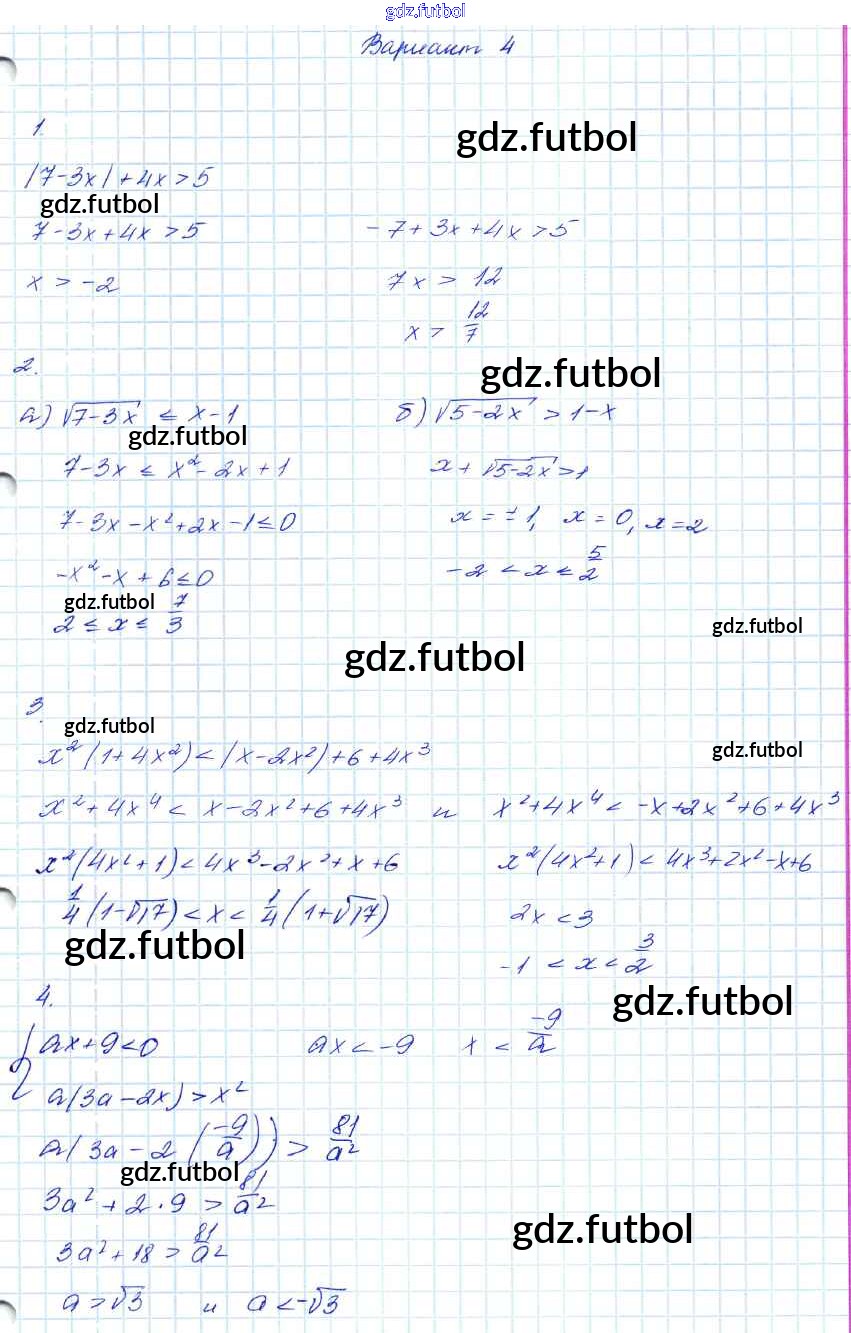 gdz.futbol
Вариант 4
1.
gdz.futbol
|7-3x|+4x>5
gdz.futbol
7-3x+4x>5 -7+3x+4x>5
x>-2 7x>12
x> 12/7
2.
gdz.futbol
а) √(7-3x) ≤ x-1 б) √(5-2x) > 1-x
gdz.futbol
7-3x ≤ x²-2x+1 x+√(5-2x)>1
7-3x-x²+2x-1≤0 x=±1, x=0, x=2
-x²-x+6≤0 -2<x≤ 5/2
gdz.futbol
2≤x≤ 7/3 gdz.futbol
gdz.futbol
3.
gdz.futbol
x²(1+4x²)<|x-2x²|+6+4x³ gdz.futbol
x²+4x⁴< x-2x²+6+4x³ и x²+4x⁴<-x+2x²+6+4x³
x²(4x²+1)<4x³-2x²+x+6 x²(4x²+1)<4x³+2x²-x+6
1/4(1-√17)<x< 1/4(1+√17) 2x<3
gdz.futbol -1<x< 3/2
4.
gdz.futbol
{ax+9<0 ax<-9 x< -9/a
a(3a-2x)>x²
a(3a-2(-9/a))> 81/a²
gdz.futbol
3a²+2·9> 81/a²
gdz.futbol
3a²+18> 81/a²
a>√3 и a<-√3